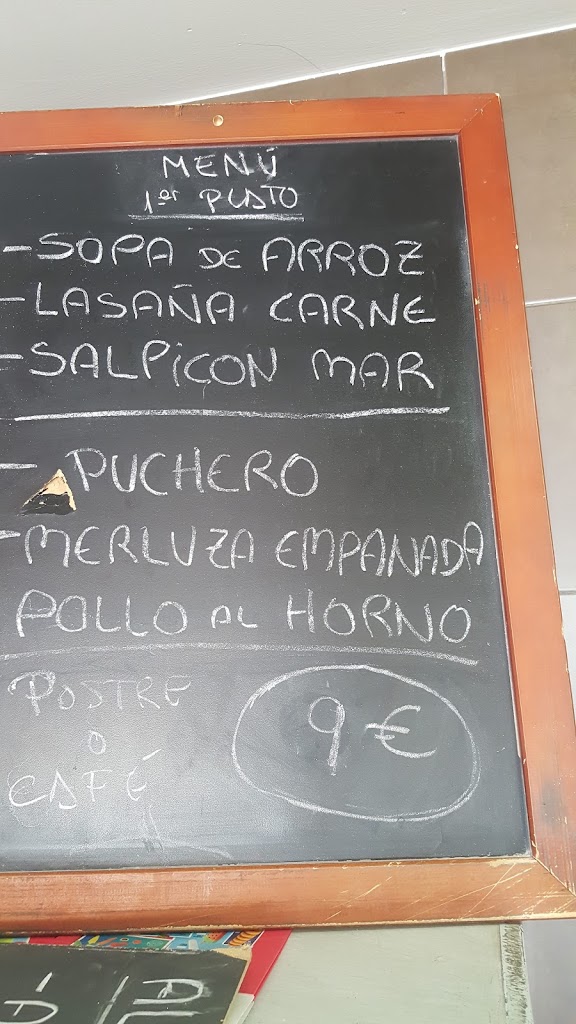 MENÚ
1er PLATO
- SOPA DE ARROZ
- LASAÑA CARNE
- SALPiCON MAR
- PUCHERO
- MERLUZA EMPANADA
POLLO AL HORNO
POSTRE
O
CAFÉ
9 €